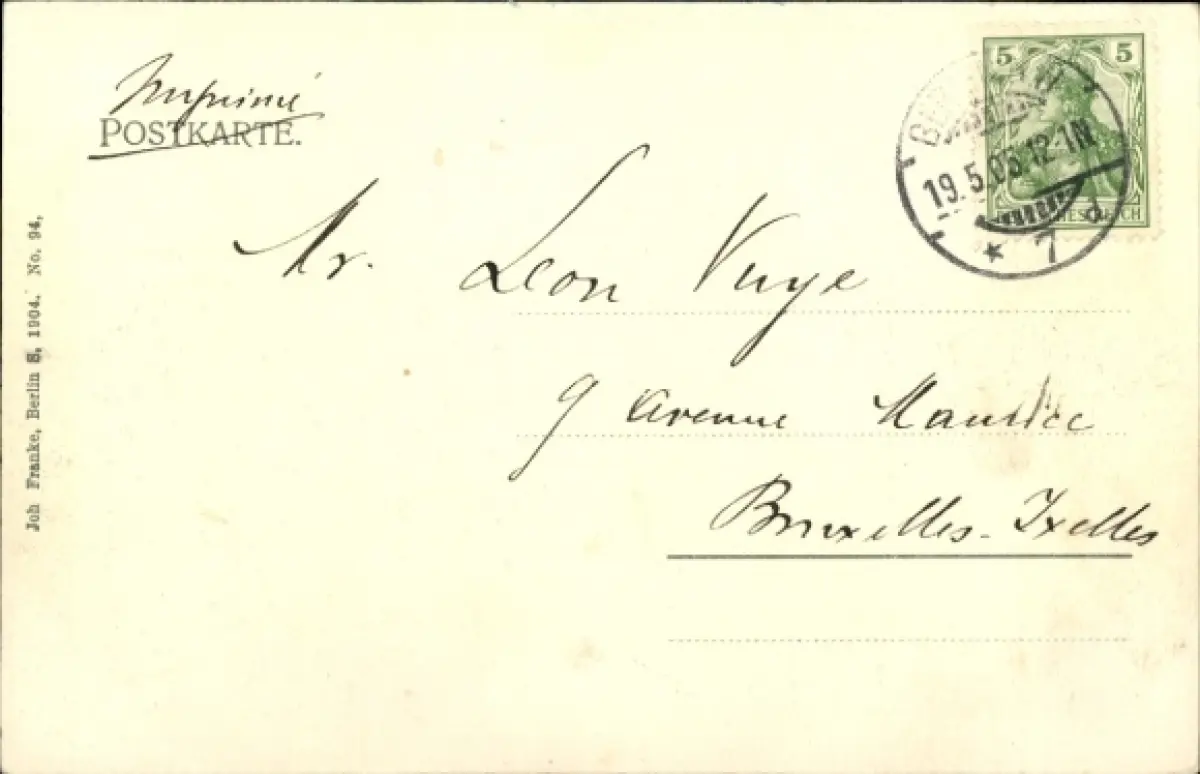 Imprimé
POSTKARTE.
5 5
19.5.05.12-1N
* 7 d
Mr. Leon Vuye
9 Avenue Maurice
Bruxelles-Ixelles
Joh Franke, Berlin S, 1904. No. 94,